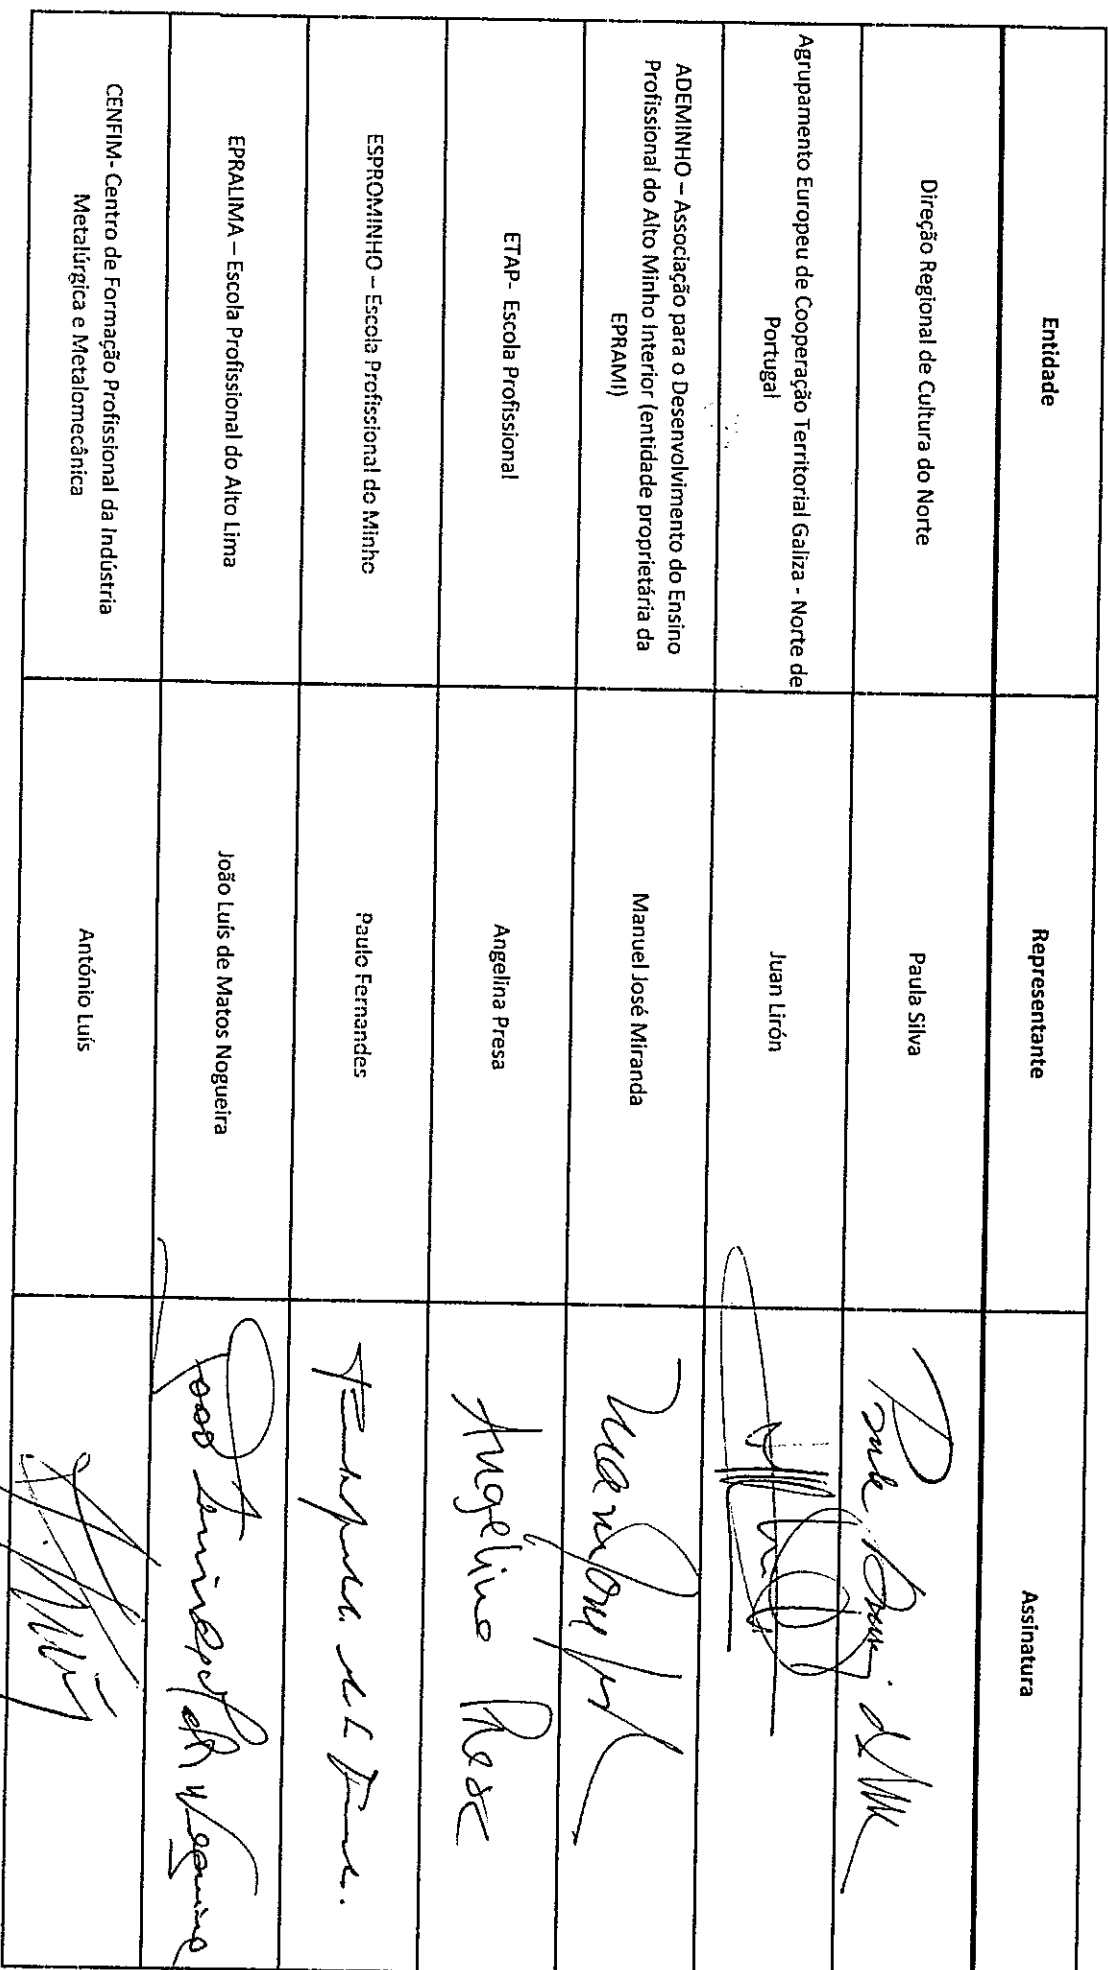 Entidade
Representante
Assinatura
Direção Regional de Cultura do Norte
Paula Silva
Agrupamento Europeu de Cooperação Territorial Galiza - Norte de
Portugal
Juan Lirón
ADEMINHO – Associação para o Desenvolvimento do Ensino
Profissional do Alto Minho Interior (entidade proprietária da
EPRAMI)
Manuel José Miranda
ETAP- Escola Profissional
Angelina Presa
Angelina Presa
ESPROMINHO – Escola Profissional do Minho
Paulo Fernandes
EPRALIMA – Escola Profissional do Alto Lima
João Luís de Matos Nogueira
CENFIM- Centro de Formação Profissional da Indústria
Metalúrgica e Metalomecânica
António Luís